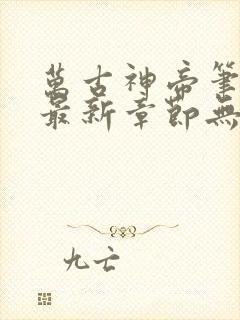 萬古神帝筆
最新章節無
九亡